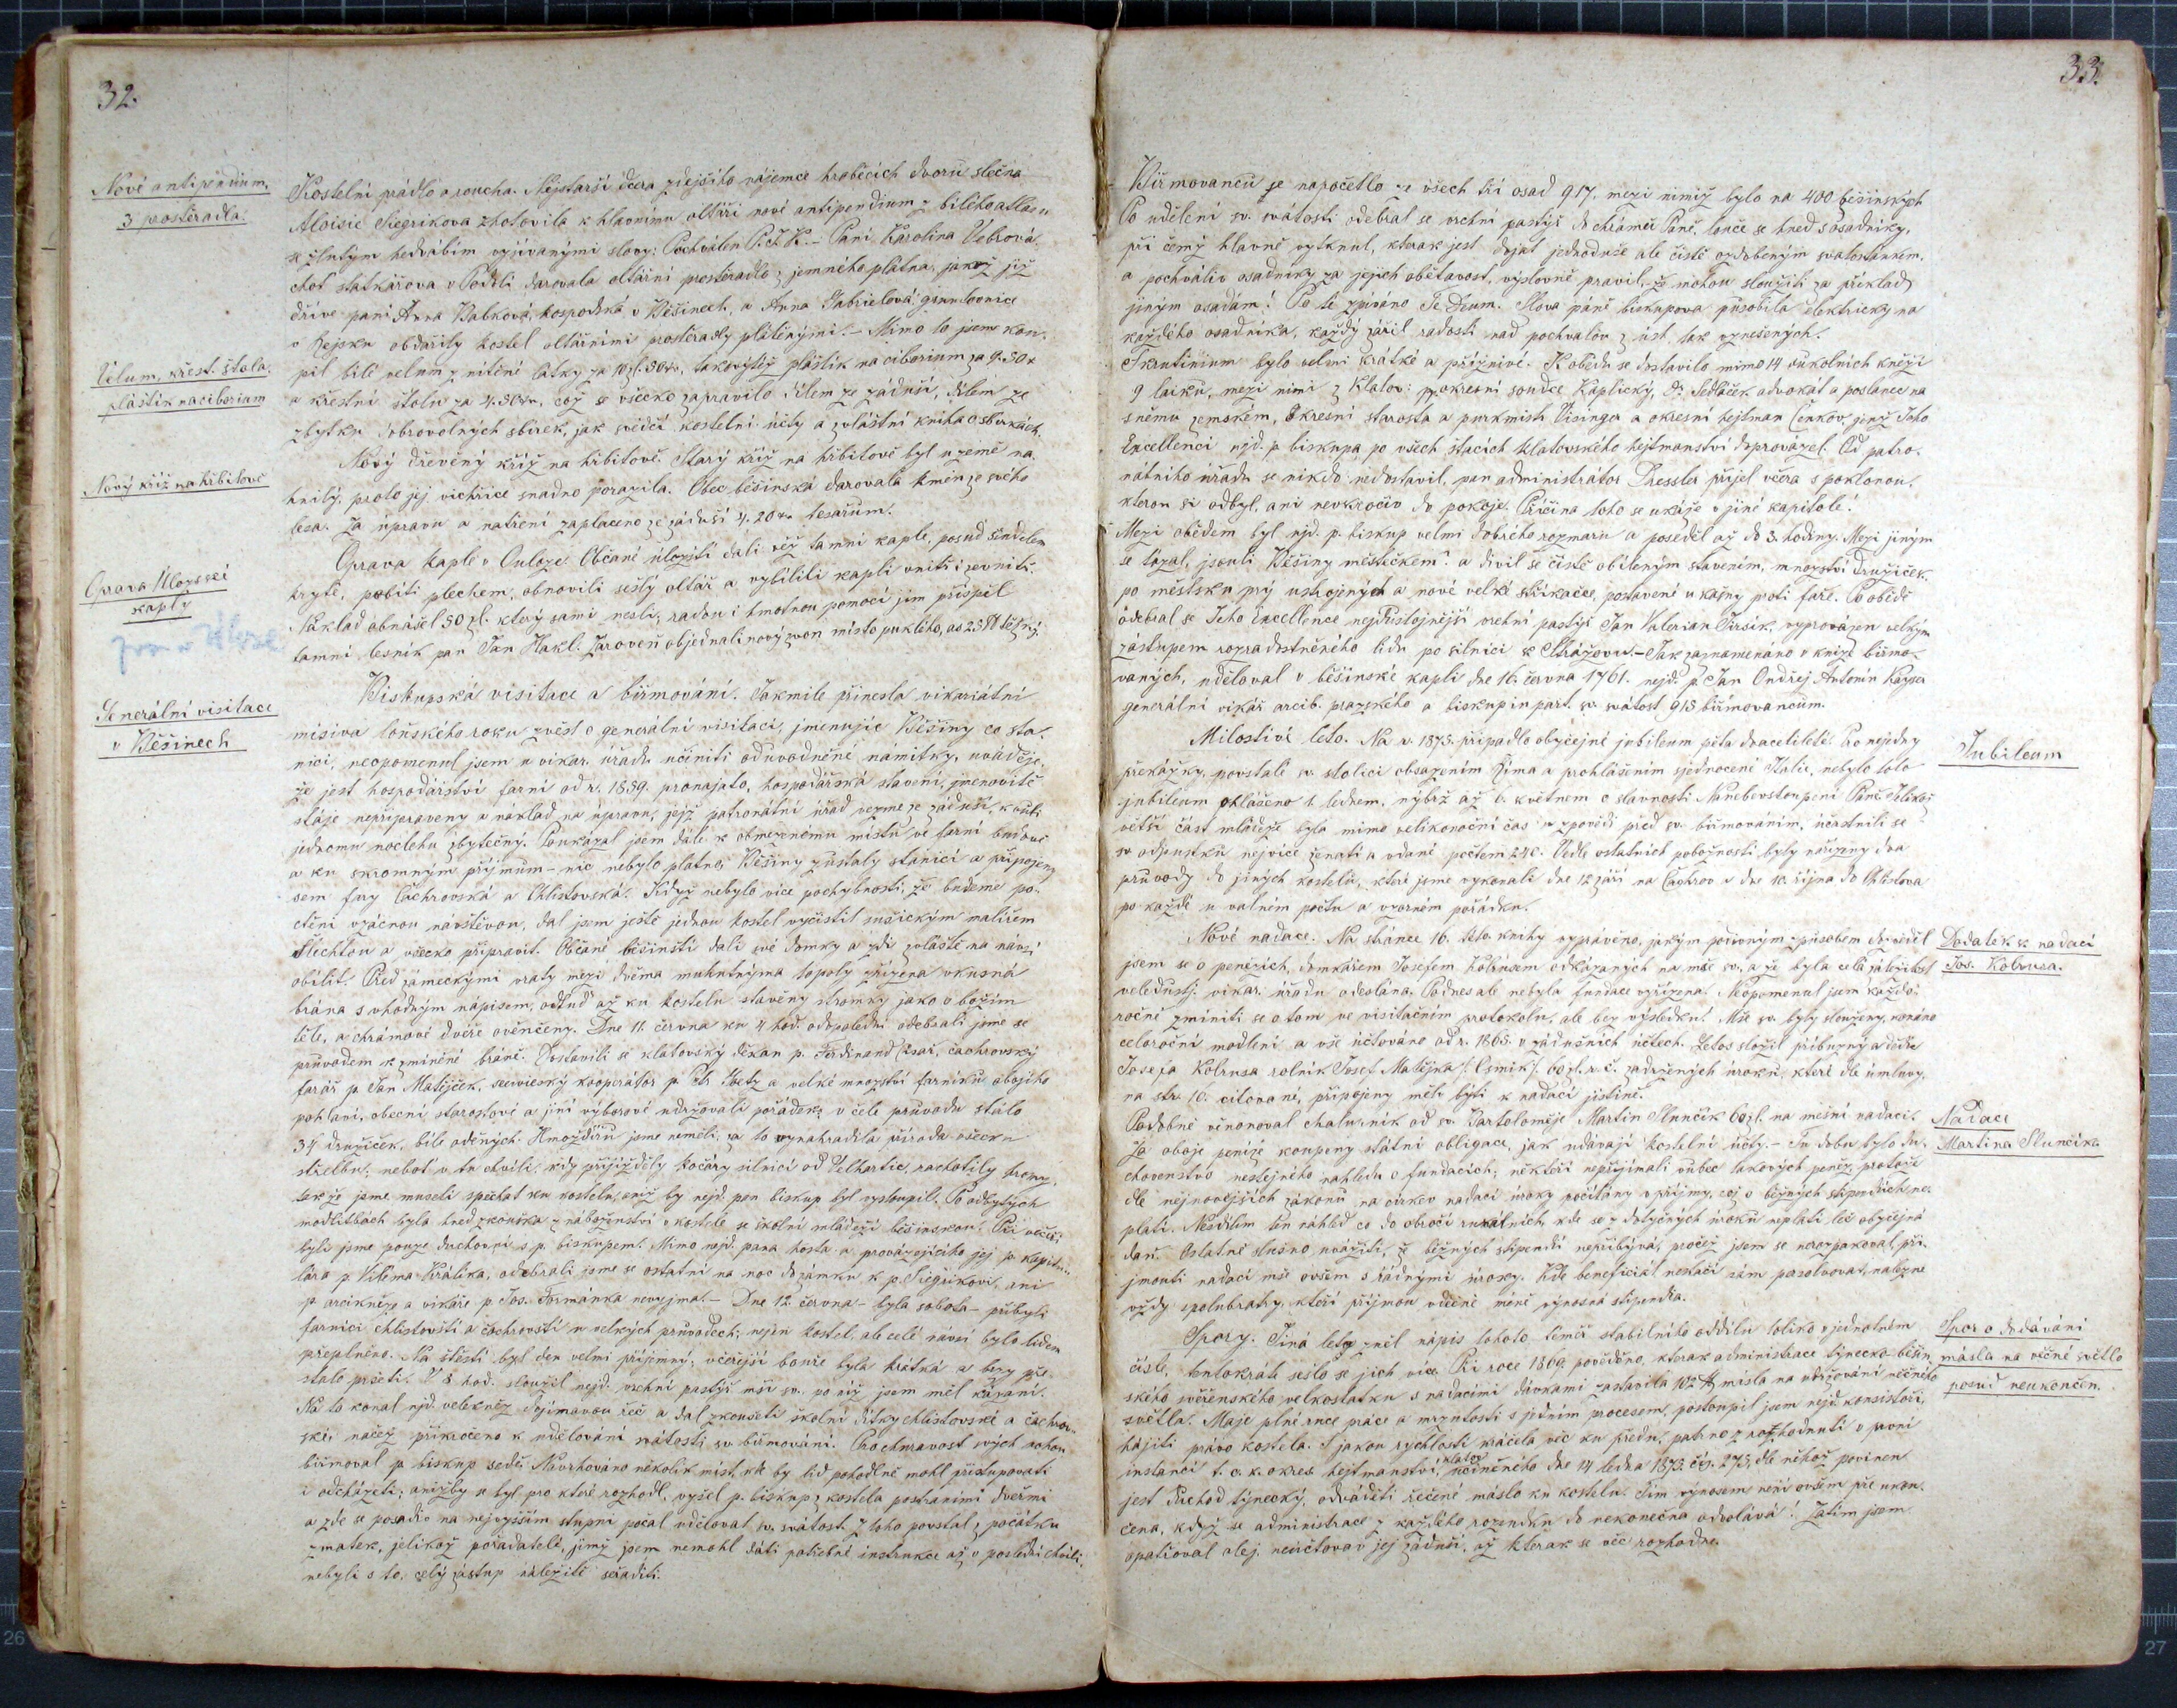 32.
Nové antipendium,
3 prostěradla.
Kostelní prádlo a roucha. Nejstarší dcera zdejšího nájemce hraběcích dvorů slečna
Aloisie Siegrikova zhotovila k hlavnímu oltáři nové antipendium z bílého atlasu
se žlutým hedvábím vyšívanými slovy: Pochválen P. J. K. – Paní Karolina Vebrová,
choť statkářova v Podolí darovala oltářní prostěradlo z jemného plátna, jakož již
dříve paní Anna Babková, hospodská v Běšinech, a Anna Gabrielová, gruntovnice
v Rejsku obdařily kostel oltářními prostěradly plátěnými. – Mimo to jsem kou-
Velum, křest. štola,
pláštík na ciborium
pil bílé velum z nitěné látky za 10 zl. 50 kr., takovýtéž pláštík na ciborium za 9.50 kr
a křestní štolu za 4.50 kr., což se všecko zapravilo dílem ze záduší, dílem ze
zbytku dobrovolných sbírek, jak svědčí kostelní účty a zvláštní kniha o sbírkách.
Nový kříž na hřbitově
Nový dřevěný kříž na hřbitově. Starý kříž na hřbitově byl u země na
hnilý, proto jej vichřice snadno porazila. Obec běšinská darovala kmen ze svého
lesa. Za úpravu a natření zaplaceno ze záduší 4.20 kr. tesařům.
Oprava Úlozské
kaply
Oprava kaple v Úloze. Občané úložští dali věž tamní kaple, posud šindelem
krytě, pobíti plechem, obnovili sešlý oltář a vybílili kapli vnitř i zevnitř.
Náklad obnášel 50 zl. který sami nesli, radou i hmotnou pomocí jim přispěl
tamní lesník pan Jan Hakl. Zároveň objednali nový zvon místo puklého, as 25 ℔ těžký.
Generální visitace
v Běšinech
Biskupská visitace a biřmování. Jakmile přinesla vikariátní
misiva loňského roku zvěst o generální visitaci, jmenujíc Běšiny co sta-
nici, neopomenul jsem u vikar. úřadu učiniti odůvodněné námitky, uváděje,
že jest hospodářství farní od r. 1859. pronajato, hospodářská stavení, jmenovitě
stáje nepřipraveny a náklad na úpravu, jejž patronátní úřad vezme ze záduší, kvůli
jednomu noclehu zbytečný. Poukázal jsem dále k obmezenému místu ve farní budově
a ku skromným příjmům – nic nebylo platno; Běšiny zůstaly stanicí a připojeny
sem fary Čachrovská a Chlistovská. Když nebylo více pochybnosti, že budeme po-
ctěni vzácnou návštěvou, dal jsem ještě jednou kostel vyčistil sušickým malířem
Šlechtou a všecko připravit. Občané běšinští dali své domky a zdi zvláště na návsi
obílit. Před zámeckými vraty mezi dvěma mohutnýma topoly zřízena vkusná
brána s vhodným nápisem, odtud až ku kostelu stavěny stromky jako o božím
těle, a chrámové dvéře ověnčeny. Dne 11. června ku 4 hod. odpoledni odebrali jsme se
průvodem k zmíněné bráně. Dostavili se klatovský děkan p. Ferdinand Císař, čachrovský
farář p. Jan Matějček, kooperátor p. Petr a velké množství farníků obojího
pohlaví, obecní starostové a jiní výborové udržovali pořádek; v čele průvodu stálo
34 družiček, bíle oděných. Hmoždířů jsme neměli, za to vynahradila příroda všecku
střelbu; neboť v tu chvíli, kdy přijížděly kočáry silnicí od Velhartic, rachotily hromy,
takže jsme museli spěchat ku kostelu, aniž by nejd. pan biskup byl vystoupil. Po odbytých
modlitbách byla hned zkouška z náboženství v kostele se školní mládeží běšinskou. Při večeři
byli jsme pouze duchovní s p. biskupem. Mimo nejd. pana hosta a provázejícího jej p. kapitu-
lára p. Viléma Králíka, odebrali jsme se ostatní na noc do zámku k p. Siegrikovi, ani
p. arcikněze a vikáře p. Jos. Formánka nevyjmaje. – Dne 12. června – byla sobota – přibyli
farníci chlistovští a čachrovští u velkých průvodech; nejen kostel, ale celé návsí bylo lidem
přeplněno. Na štěstí byl den velmi příjemný; včerejší bouře byla krátká a brzy pře-
stalo pršeti. V 8 hod. sloužil nejd. vrchní pastýř mši sv. po níž jsem měl kázaní.
Na to konal njd. velekněz dojímavou řeč a dal zkoušeti školní dítky chlistovské a čachrov-
ské; načež přikročeno k udělování svátosti sv. biřmování. Pro churavost svých nohou
biřmoval p. biskup sedě. Navrhováno několik míst, kde by lid pohodlně mohl přistupovati
i odcházeti; anižby se byl pro které rozhodl, vyšel p. biskup z kostela postranními dveřmi
a zde se posadiv na nejvyšším stupni počal udělovat sv. svátost. Z toho povstal z počátku
zmatek, jelikož pořadatelé, jimž jsem nemohl dáti potřebné instrukce až v poslední chvíli,
nebyli s to, celý zástup náležitě seřaditi.
33.
Biřmovanců se napočetlo ze všech tří osad 917, mezi nimiž bylo na 400 běšinských
Po udělení sv. svátosti odebral se vrchní pastýř do chrámu Páně, louče se hned s osadníky,
při čemž hlavně vytknul, kterak jest dojat jednoduše ale čistě ozdobeným svatostánkem,
a pochváliv osadníky za jejich obětavost, výslovně pravil, že mohou sloužiti za příklad
jiným osadám! Po té zpíváno Te Deum. Slova páně biskupova působila elektricky na
každého osadníka, každý zářil radostí nad pochvalou z úst tak vznešených.
Skrutinium bylo velmi krátké a příznivé. K obědu se dostavilo mimo 14 okolních kněží
9 laiků, mezi nimi z Klatov: okresní soudce Kaplický, Dr. Sedláček advokát a poslanec na
sněmu zemském, okresní starosta a purkmistr Visinger a okresní hejtman Čenkov, jenž Jeho
Excellenci nejd. p. biskupa po všech stacích klatovského hejtmanství doprovázel. Od patro-
nátního úřadu se nikdo nedostavil, pan administrátor Dressler přijel včera s poklonou,
kterou si odbyl, ani nevkročiv do pokoje. Příčina toho se ukáže v jiné kapitole!
Mezi obědem byl njd. p. biskup velmi dobrého rozmaru a poseděl až do 3. hodiny. Mezi jiným
se tázal, jsouli Běšiny městečkem? a divil se čistě obíleným stavením, množství družiček
po městsku prý ustrojených a nové velké stříkačce, postavené u kašny proti faře. Po obědě
odebral se Jeho Excellence nejdůstojnější vrchní pastýř Jan Valerian Jirsík, vyprovázen velkým
zástupem rozradostněného lidu po silnici k Strážovu. – Jak zaznamenáno v knize biřmo-
vaných, uděloval v běšinské kapli dne 16. června 1761. nejd. p. Jan Ondřej Antonín Kayser
generální vikář arcib. pražského a biskup in part. sv. svátost 918 biřmovancům.
Jubileum
Milostivé leto. Na r. 1875. připadlo obyčejné jubileum pěta dvacetileté. Pro nejedny
překážky, povstalé sv. stolici obsazením Říma a prohlášením sjednocené Italie, nebylo toto
jubileum ohlášeno 1. lednem, nýbrž až 6. květnem o slavnosti Nanebevstoupení Páně. Jelikož
větší část mládeže byla mimo velikonoční čas u zpovědi před sv. biřmováním, účastnili se
sv. odpustků nejvíce ženatí a vdané počtem 240. Vedle ostatních pobožností byly nařízeny dva
průvody do jiných kostelů, které jsme vykonali dne 12. září na Čachrov a dne 10. října do Chlistova
po každé u valném počtu a vzorném pořádku.
Dodatek k nadaci
Jos. Kolrusa.
Nové nadace. Na stránce 16. této knihy vypravěno, jakým podivným způsobem dozvěděl
jsem se o penězích, domkářem Josefem Kolrusem odkázaných na mše sv., a že byla celá záležitost
veledůstj. vikar. úřadu odeslána. Podnes ale nebyla fundace vyřízena. Neopomenul jsem každo-
ročně zmíniti se o tom ve visitačním protokolu, ale bez výsledku! Mše sv. byly slouženy, konáno
celoroční modlení a vše účtováno od r. 1865. v zádušních účtech. Letos složil příbuzný a dědic
Josefa Kolrusa rolník Josef Matějka 60 zl. r. č. zadržených úroků, které dle úmluvy,
na str. 16. citované, připojeny měli býti k nadací jistině.
Nadace
Martina Slunčíka
Podobně věnoval chalupník od sv. Bartoloměje Martin Slunčík 60 zl. na mešní nadaci.
Za oboje peníze koupeny státní obligace, jak udávají kostelní účty. – Tu dobu bylo du-
chovenstvo nestejného náhledu o fundacích; někteří nepřijímali vůbec takových peněz, protože
dle nejnovějších zákonů na církev nadací úroky počítány v příjmy, což o běžných stipendiích ne-
platí. Nesdílím ten náhled co do obročí rurálních, kde se z dotyčných úroků neplatí leč obyčejná
daň. Ostatně slušno uvážiti, že běžných stipendií nepřibývá, pročež jsem se nerozpakoval, při-
jmouti nadací mše ovšem s řádnými úroky. Kde beneficiát nestačí sám persolvovat, nalezne
vždy spolubratry, kteří přijmou vděčně méně výnosná stipendia.
Spor o dodávání
másla na věčné světlo
posud neukončen.
Spory. Jiná leta zněl nápis tohoto téměř stabilního oddílu toliko v jednotném
čísle, tentokráte sešlo se jich více. Při roce 1860. pověděno, kterak administrace týnecko-běšin-
ského svěřenského velkostatku s nadacími dávkami zastavila 102 ℔ másla na udržování věčného
světla. Maje plné ruce práce a mrzutosti s jedním procesem, postoupil jsem nejd. konsistoři,
hájiti právo kostela. S jakou rychlostí kráčela věc ku předu, patrno z rozhodnutí v první
instanci t. c. k. okres. hejtmanství, klatov. učiněného dne 14. ledna 1875. čís. 275, dle něhož povinen
jest Důchod týnecký, odváděti řečené máslo ku kostelu. Tím výnosem není ovšem pře ukon-
čena, když se administrace z každého rozsudku do nekonečna odvolává! Zatím jsem
opatřoval olej, neúčtovav jej záduší, až kterak se věc rozhodne.